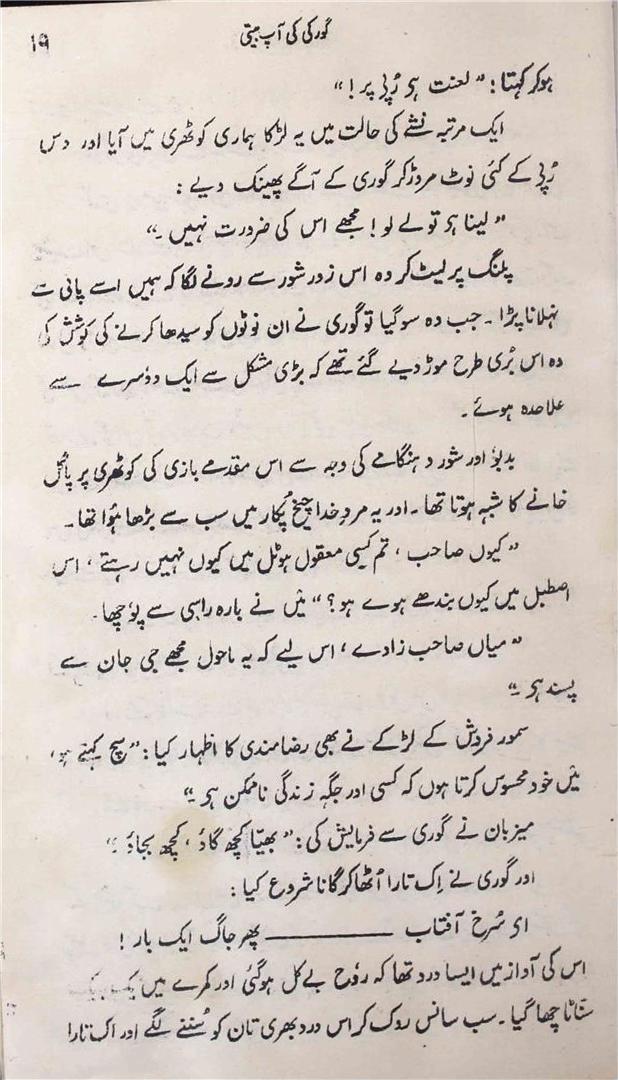 گورکی کی آپ بیتی
۱۹
ہوکر کہتا: ” لعنت ہی رُپی پر! “
ایک مرتبہ نشے کی حالت میں یہ لڑکا ہماری کوٹھری میں آیا اور دس
رُپی کے کئی نوٹ مروڑ کر گوری کے آگے پھینک دیے :
” لینا ہی تو لے لو! مجھے اس کی ضرورت نہیں ۔“
پلنگ پر لیٹ کر وہ اس زور شور سے رونے لگا کہ ہمیں اسے پانی سے
نہلانا پڑا ۔ جب وہ سو گیا تو گوری نے ان نوٹوں کو سیدھا کرنے کی کوشش کی
وہ اس بُری طرح موڑ دیے گئے تھے کہ بڑی مشکل سے ایک دوٗسرے سے
علاحدہ ہوئے ۔
بدبوٗ اور شور و ہنگامے کی وجہ سے اس مقدمے بازی کی کوٹھری پر پاگل
خانے کا شبہ ہوتا تھا ۔ اور یہ مردِ خدا چیخ پُکار میں سب سے بڑھا ہوٗا تھا ۔
” کیوں صاحب ، تم کسی معقول ہوٹل میں کیوں نہیں رہتے ، اس
اصطبل میں کیوں بندھے ہوے ہو ؟ “ میٖں نے بارہ راسی سے پوٗچھا ۔
” میاں صاحب زادے ، اس لیے کہ یہ ماحول مجھے جی جان سے
پسند ہی ۔“
سمور فروش کے لڑکے نے بھی رضامندی کا اظہار کیا : ” سچ کہتے ہو ،
میٖں خود محسوس کرتا ہوں کہ کسی اور جگہ زندگی ناممکن ہی ۔“
میزبان نے گوری سے فرمایش کی : ” بھیّا کچھ گاؤ ، کچھ بجاؤ ۔“
اور گوری نے اِک تارا اُٹھا کر گانا شروع کیا :
ای سُرخ آفتاب ———— پھر جاگ ایک بار !
اس کی آواز میں ایسا درد تھا کہ روٗح بے کل ہوگئی اور کمرے میں
سنّاٹا چھا گیا ۔ سب سانس روک کر اس درد بھری تان کو سُننے لگے اور اک تارا